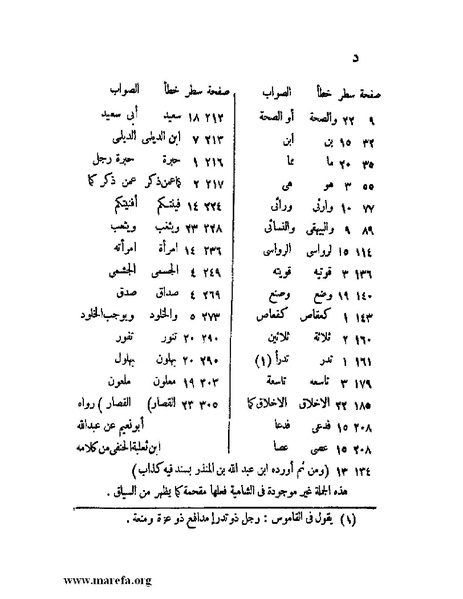 د
صفحة سطر خطأ الصواب
٩ ٢٢ والصحة أو الصحة
٣٢ ١٥ بن ابن
٣٥ ٢٠ ما مما
٥٥ ٣ هو هى
٧٧ ١٠ وارثى ورائى
٨٩ ٩ والبيهقى والنسائى
١١٤ ١٥ لرواسى الرواسى
١٣٦ ٣ قوتيه قويته
١٤٠ ١٩ وضع وصنع
١٤٣ ١ كعقاص كقعاص
١٦٠ ٢ ثلاثة ثلاثين
١٦١ ١ تدر تدرأ (١)
١٧٩ ٣ تاسعه تاسعة
١٨٥ ٢٢ الاخلاق الاخلاق كما
٢٠٨ ١٥ فدعى فدعا
٢٠٨ ١٥ عصى عصا
صفحة سطر خطأ الصواب
٢١٢ ١٨ سعيد أبى سعيد
٢١٣ ٧ ابن الديلى الديلى
٢١٦ ١ حبرة حبرة رجل
٢١٧ ٢ كما عمن ذكر عمن ذكر كما
٢٢٤ ١٤ أفنيتكم
٢٢٨ ٢٣ ويثغب ويثعب
٢٣٦ ١٤ امرأة امرأته
٢٤٩ ٤ الجسمى الجشمى
٢٦٩ ٤ صداق صدق
٢٧٣ ٥ والخلود ويوجب الخلود
٢٩٠ ٢٠ تنور تفور
٢٩٥ ٢٠ بهلون بهلول
٣٠٣ ١٩ معلون ملعون
٣٠٥ ٢٣ القصار) القصار) رواه
أبو نعيم عن عبد الله
ابن ثعلبة الحنفى من كلامه
١٣٤ ١٣ (ومن ثم أورده ابن عبد الله بن المنذر بسند فيه كذاب)
هذه الجملة غير موجودة فى الشامية فلعلها مقحمة كما يظهر من السياق .
(١) يقول فى القاموس : رجل ذو تدرإ مدافع ذو عزة ومنعة .
www.marefa.org